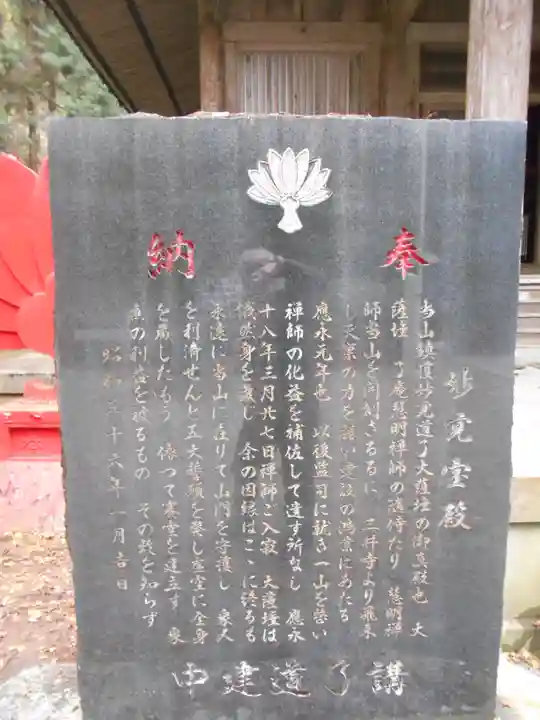 奉納
妙覚宝殿
当山鎮護妙覚道了大薩埵の御真殿也　大
薩埵　了庵慧明禅師の随侍たり　慧明禅
師当山を開創さるるに　三井寺より飛来
し天業の力を振い建設の鴻業にあたる
應永元年也　以後監司に就き一山を営い
禅師の化益を補佐して遺す所なし　應永
十八年三月廿七日禅師ご入寂　大薩埵は
儼然身を変じ　余の因縁はここに終るも
永遠に当山に在りて山門を守護し　衆人
を利済せんと五大誓願を発し虚空に全身
を蔵したもう　依つて宝堂を建立す　衆
生の利益を被るもの　その数を知らず
昭和五十六年一月吉日
道了講
中建道